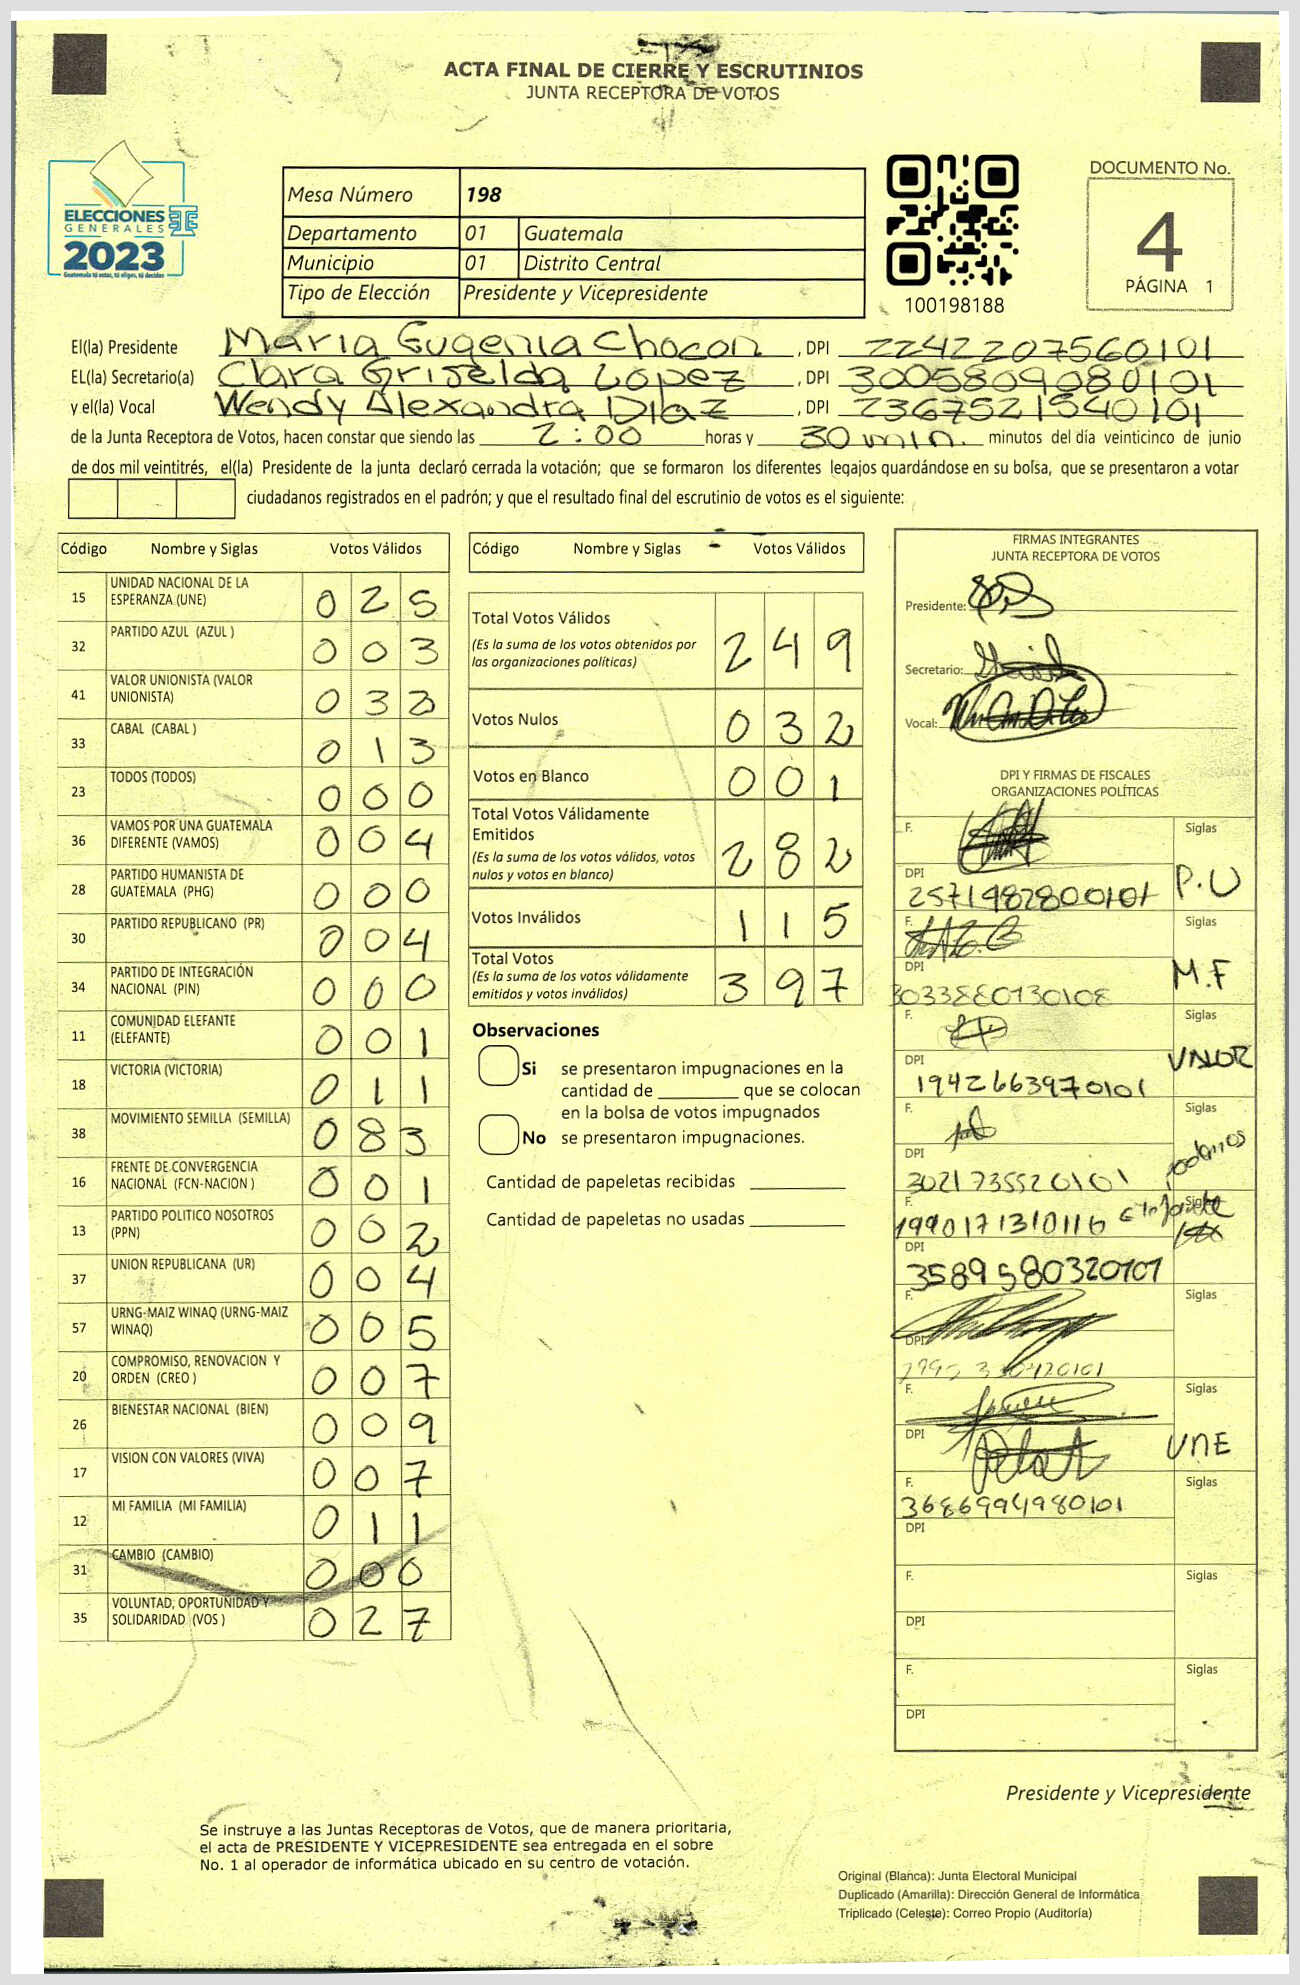 ACTA FINAL DE CIERRE Y ESCRUTINIOS
JUNTA RECEPTORA DE VOTOS
ELECCIONES
GENERALES
2023
Guatemala tú estas, tú eliges, tú decides
Mesa Número 198
Departamento 01 Guatemala
Municipio 01 Distrito Central
Tipo de Elección Presidente y Vicepresidente
100198188
DOCUMENTO No.
4
PÁGINA 1
El(la) Presidente Maria Eugenia Chocon , DPI 2242207560101
EL(la) Secretario(a) Clara Griselda Lopez , DPI 3005809080101
y el(la) Vocal Wendy Alexandra Diaz , DPI 2367521540101
de la Junta Receptora de Votos, hacen constar que siendo las 2:00 horas y 30 min. minutos del día veinticinco de junio
de dos mil veintitrés, el(la) Presidente de la junta declaró cerrada la votación; que se formaron los diferentes legajos quardándose en su bolsa, que se presentaron a votar
ciudadanos registrados en el padrón; y que el resultado final del escrutinio de votos es el siguiente:
Código Nombre y Siglas Votos Válidos
15 UNIDAD NACIONAL DE LA ESPERANZA (UNE) 0 2 5
32 PARTIDO AZUL (AZUL ) 0 0 3
41 VALOR UNIONISTA (VALOR UNIONISTA) 0 3 2
33 CABAL (CABAL ) 0 1 3
23 TODOS (TODOS) 0 0 0
36 VAMOS POR UNA GUATEMALA DIFERENTE (VAMOS) 0 0 4
28 PARTIDO HUMANISTA DE GUATEMALA (PHG) 0 0 0
30 PARTIDO REPUBLICANO (PR) 0 0 4
34 PARTIDO DE INTEGRACIÓN NACIONAL (PIN) 0 0 0
11 COMUNIDAD ELEFANTE (ELEFANTE) 0 0 1
18 VICTORIA (VICTORIA) 0 1 1
38 MOVIMIENTO SEMILLA (SEMILLA) 0 8 3
16 FRENTE DE CONVERGENCIA NACIONAL (FCN-NACION ) 0 0 1
13 PARTIDO POLITICO NOSOTROS (PPN) 0 0 2
37 UNION REPUBLICANA (UR) 0 0 4
57 URNG-MAIZ WINAQ (URNG-MAIZ WINAQ) 0 0 5
20 COMPROMISO, RENOVACION Y ORDEN (CREO ) 0 0 7
26 BIENESTAR NACIONAL (BIEN) 0 0 9
17 VISION CON VALORES (VIVA) 0 0 7
12 MI FAMILIA (MI FAMILIA) 0 1 1
31 CAMBIO (CAMBIO) 0 0 0
35 VOLUNTAD, OPORTUNIDAD Y SOLIDARIDAD (VOS ) 0 2 7
Código Nombre y Siglas Votos Válidos
Total Votos Válidos 2 4 9
(Es la suma de los votos obtenidos por
las organizaciones políticas)
Votos Nulos 0 3 2
Votos en Blanco 0 0 1
Total Votos Válidamente
Emitidos 2 8 2
(Es la suma de los votos válidos, votos
nulos y votos en blanco)
Votos Inválidos 1 1 5
Total Votos 3 9 7
(Es la suma de los votos válidamente
emitidos y votos inválidos)
Observaciones
Si se presentaron impugnaciones en la
cantidad de ________ que se colocan
en la bolsa de votos impugnados
No se presentaron impugnaciones.
Cantidad de papeletas recibidas
Cantidad de papeletas no usadas
FIRMAS INTEGRANTES
JUNTA RECEPTORA DE VOTOS
Presidente:
Secretario:
Vocal:
DPI Y FIRMAS DE FISCALES
ORGANIZACIONES POLÍTICAS
F. Siglas
DPI 2571982800101 P.U
F. Siglas
DPI 3033880130108 M.F
F. Siglas
DPI 1942663970101 VALOR
F. Siglas
DPI 3021735520101 podemos
F. 1990171310116 Elefante Siglas
DPI 3589580320101
F. Siglas
DPI
F. Siglas
DPI UNE
F. Siglas
3686994980101
DPI
F. Siglas
DPI
F. Siglas
DPI
Presidente y Vicepresidente
Se instruye a las Juntas Receptoras de Votos, que de manera prioritaria,
el acta de PRESIDENTE Y VICEPRESIDENTE sea entregada en el sobre
No. 1 al operador de informática ubicado en su centro de votación.
Original (Blanca): Junta Electoral Municipal
Duplicado (Amarilla): Dirección General de Informática
Triplicado (Celeste): Correo Propio (Auditoría)